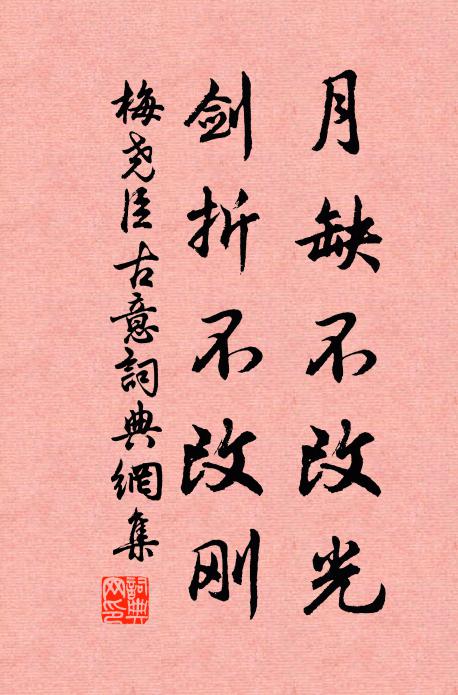 月缺不改光
剑折不改刚
梅尧臣古意詞典網集
詞典网印